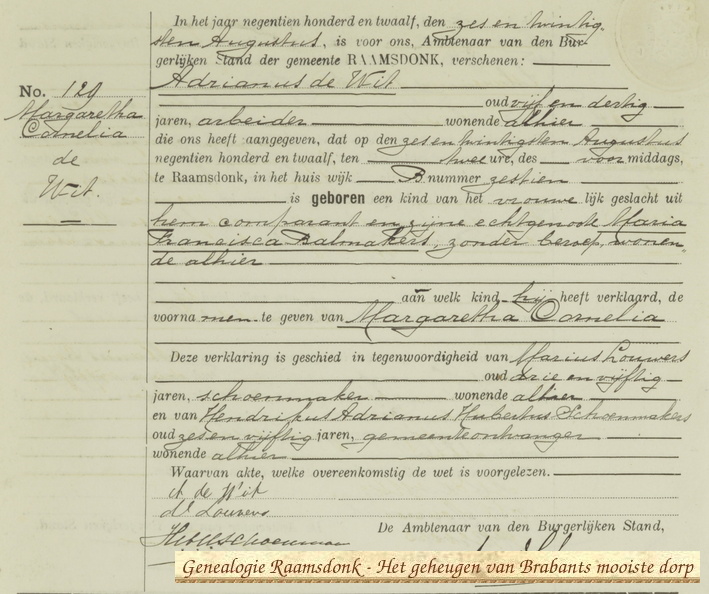 In het jaar negentien honderd en twaalf, den zes en twintig-
sten Augustus, is voor ons, Ambtenaar van den Bur-
gerlijken Stand der gemeente RAAMSDONK, verschenen:
Adrianus de Wit
oud vijf en dertig
jaren, arbeider wonende alhier
die ons heeft aangegeven, dat op den zes en twintigsten Augustus
negentien honderd en twaalf, ten twee ure, des voor middags,
te Raamsdonk, in het huis wijk B. nummer zestien
is geboren een kind van het vrouwe lijk geslacht uit
hem comparant en zijne echtgenoote Maria
Francisca Balmakers, zonder beroep, wonen-
de alhier
aan welk kind hij heeft verklaard, de
voorna men te geven van Margaretha Cornelia
Deze verklaring is geschied in tegenwoordigheid van Marius Louwers
oud drie en vijftig
jaren, schoenmaker wonende alhier
en van Hendrikus Adrianus Hubertus Schoenmakers
oud zes en vijftig jaren, gemeenteontvanger
wonende alhier
Waarvan akte, welke overeenkomstig de wet is voorgelezen.
A de Wit
M Louwers
De Ambtenaar van den Burgerlijken Stand,
No. 129
Margaretha
Cornelia
de
Wit.
Genealogie Raamsdonk - Het geheugen van Brabants mooiste dorp